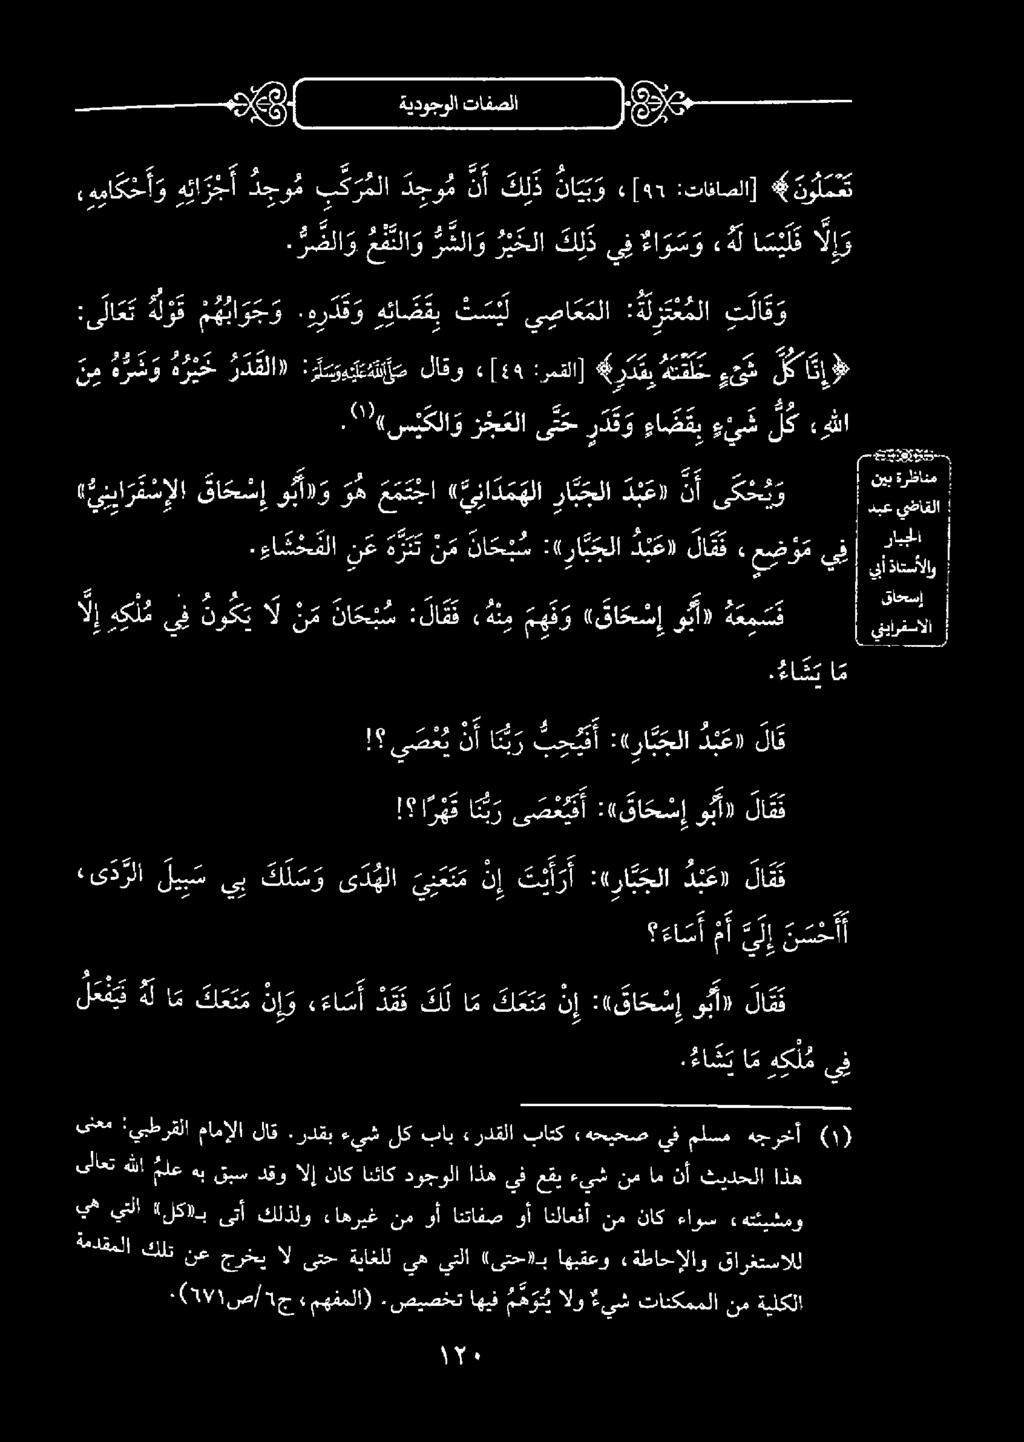 الصفات الوجودية
تَعْمَلُونَ ﴾ [الصافات: ٩٦] ، وَبَيَانُ ذَلِكَ أَنَّ مُوجِدَ المُرَكَّبِ مُوجِدُ أَجْزَائِهِ وَأَحْكَامِهِ،
وَإِلَّا فَلَيْسَا لَهُ ، وَسَوَاءٌ فِي ذَلِكَ الخَيْرُ وَالشَّرُّ وَالنَّفْعُ وَالضَّرُّ.
وَقَالَتِ المُعْتَزِلَةُ: المَعَاصِي لَيْسَتْ بِقَضَائِهِ وَقَدَرِهِ. وَجَوَابُهُمْ قَوْلُهُ تَعَالَى:
﴿ إِنَّا كُلَّ شَيْءٍ خَلَقْنَهُ بِقَدَرٍ﴾ [القمر: ٤٩] ، وقال صَلَّى اللَّهُ عَلَيْهِ وَسَلَّمَ: «القَدَرُ خَيْرُهُ وَشَرُّهُ مِنَ
اللهِ، كُلُّ شَيْءٍ بِقَضَاءٍ وَقَدَرٍ حَتَّى العَجْزِ وَالكَيْسِ»(١).
وَيُحْكَى أَنَّ «عَبْدَ الجَبَّارِ الهَمَدَانِيَّ» اجْتَمَعَ هُوَ وَ«أَبُو إِسْحَاقَ الإِسْفَرَايِنِيُّ»
فِي مَوْضِعٍ، فَقَالَ «عَبْدُ الجَبَّارِ»: سُبْحَانَ مَنْ تَنَزَّهَ عَنِ الفَحْشَاءِ.
فَسَمِعَهُ «أَبُو إِسْحَاقَ» وَفَهِمَ مِنْهُ، فَقَالَ: سُبْحَانَ مَنْ لَا يَكُونُ فِي مُلْكِهِ إِلَّا
مَا يَشَاءُ.
مناظرة بين
القاضي عبد
الجبار
والأستاذ أبي
إسحاق
الاسفرايني
قَالَ «عَبْدُ الجَبَّارِ»: أَفَيُحِبُّ رَبُّنَا أَنْ يُعْصَي؟!
فَقَالَ «أَبُو إِسْحَاقَ»: أَفَيُعْصَى رَبُّنَا قَهْرًا؟!
فَقَالَ «عَبْدُ الجَبَّارِ»: أَرَأَيْتَ إِنْ مَنَعَنِيَ الهُدَى وَسَلَكَ بِي سَبِيلَ الرَّدَى،
أَأَحْسَنَ إِلَيَّ أَمْ أَسَاءَ؟
فَقَالَ «أَبُو إِسْحَاقَ»: إِنْ مَنَعَكَ مَا لَكَ فَقَدْ أَسَاءَ، وَإِنْ مَنَعَكَ مَا لَهُ فَيَفْعَلُ
فِي مُلْكِهِ مَا يَشَاءُ.
(١) أخرجه مسلم في صحيحه، كتاب القدر، باب كل شيء بقدر. قال الإمام القرطبي: معنى
هذا الحديث أن ما من شيء يقع في هذا الوجود كائنا كان إلا وقد سبق به علمُ الله تعالى
ومشيئته، سواء كان من أفعالنا أو صفاتنا أو من غيرها، ولذلك أتى بـ«كل» التي هي
للاستغراق والإحاطة، وعقبها بـ«حتى» التي هي للغاية حتى لا يخرج عن تلك المقدمة
الكلية من الممكنات شيءٌ ولا يُتَوَهَّمُ فيها تخصيص. (المفهم، ج٦/ص٦٧١).
١٢٠